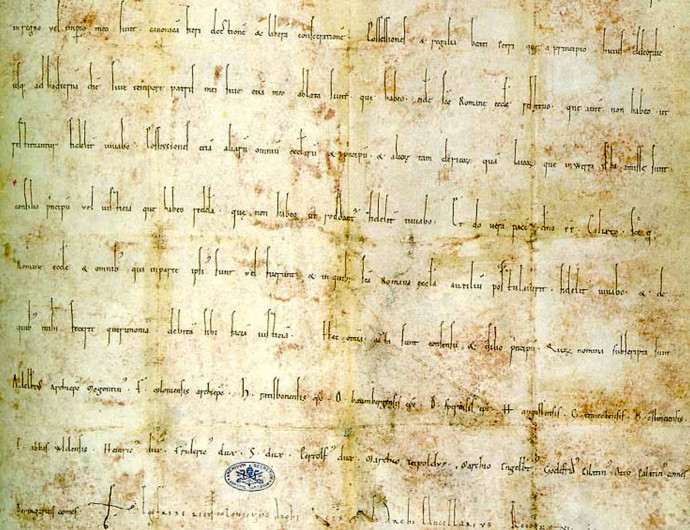 in regno vel imperio meo sunt canonica fieri electione & libera consecratione Possessiones & regalia beati petri que a principio huius discordie
usq; ad hodiernā diē sive tempore patris mei sive etiā meo ablata sunt que habeo eidē sce Romane eccle restituo que autē non habeo ut
restituantur fideliter iuvabo Possessiones etiā aliarū omniū eccliarū & principū & aliorū tam clericorū quā laicorū que in werra ista amisse sunt
consilio principū vel iusticia que habeo reddā que non habeo ut reddantur fideliter iuvabo Et do verā pacē dno pp Calixto sceq;
Romane eccle & omnib; qui in parte ipsius sunt vel fuerunt & in quib; sca Romana ecclia auxiliū postulaverit fideliter iuvabo & de
quib; mihi fecerit querimoniā debitā sibi faciā iusticiā Hec omnia acta sunt consensu & consilio principū Quorū nomina subscripta sunt
Adelbtus archieps Mogontinus F coloniensis archieps H ratisbonensis eps O bauenbergensis eps B spirensis eps H augustensis G
E abbas uldensis Heinricus dux Fridericus dux S dux Pertolfus dux Marchio teipoldus Marchio Engelbtus Godefridus Palatinus Otto Palatinus comes
Beringarius comes